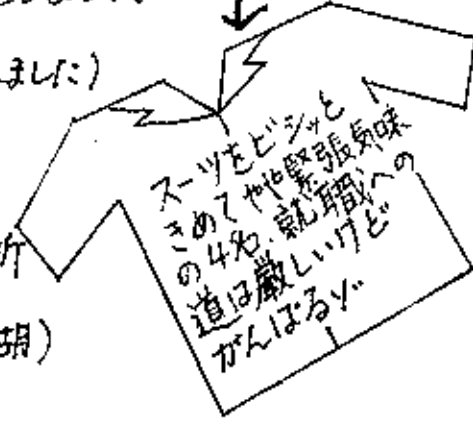 ました)
所
胡)
スーツをビシッと
きめてやや緊張気味
の4名、就職への
道は厳しいけど
がんばるゾ